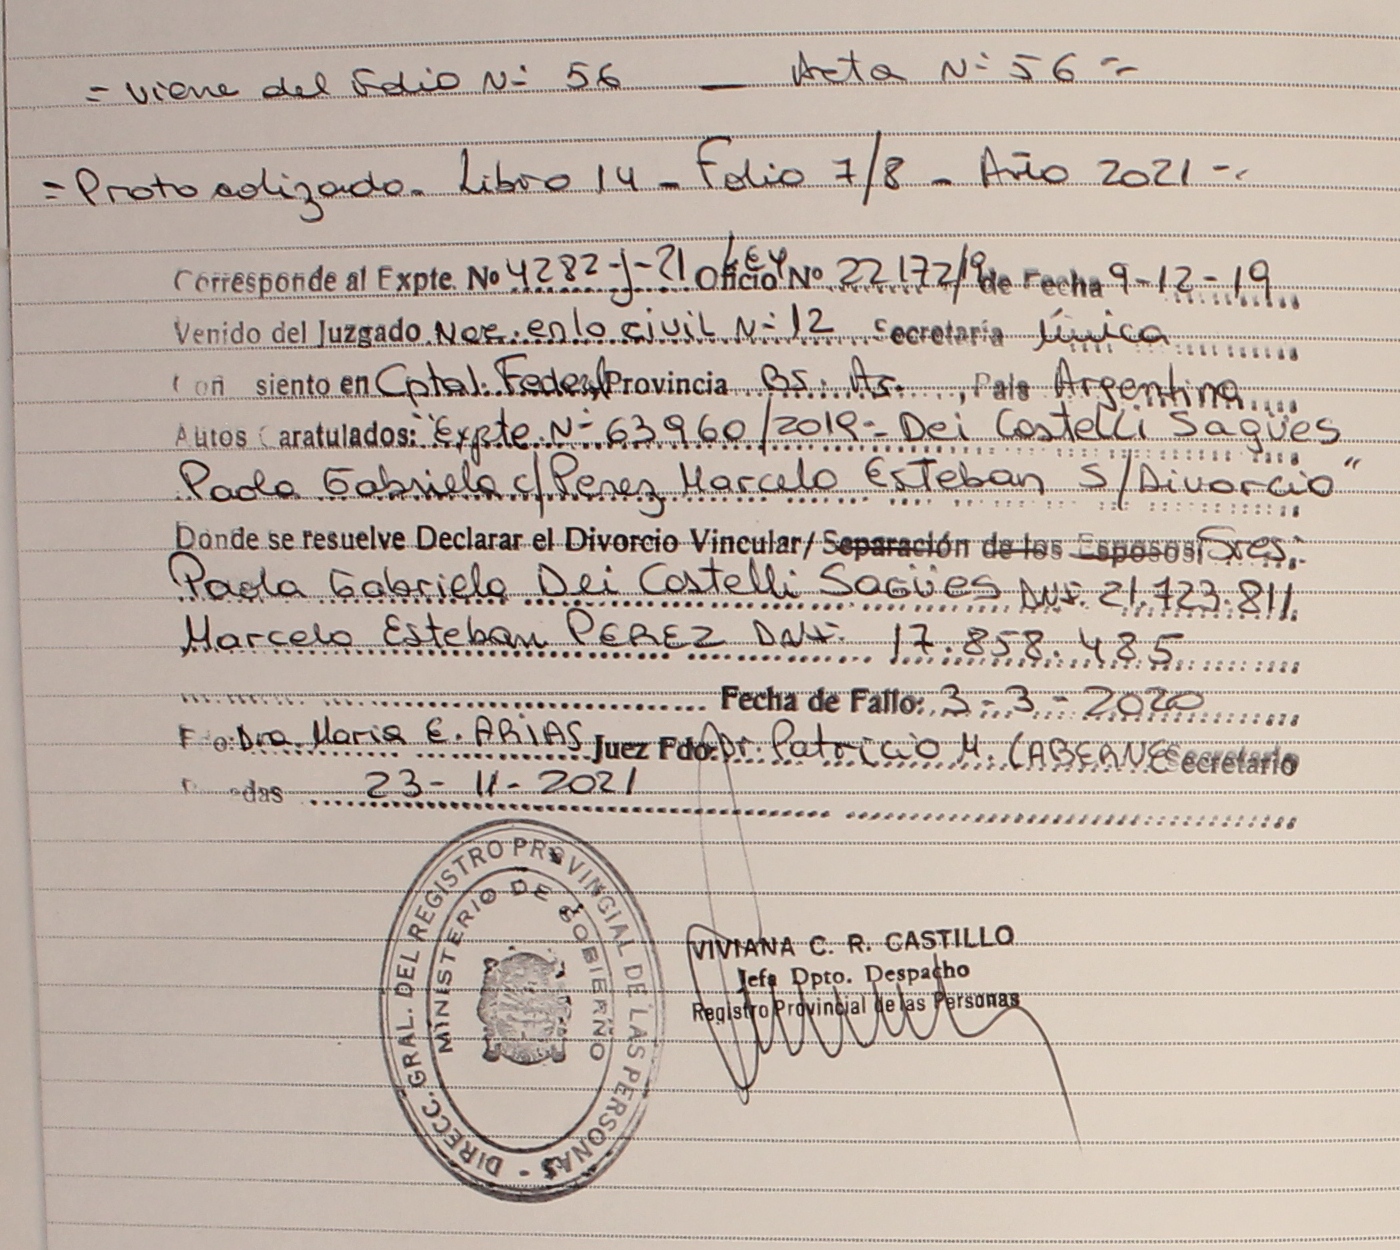 = Viene del Folio N° 56 — Acta N° 56 =
= Protocolizado - Libro 14 - Folio 7/8 - Año 2021 -
Corresponde al Expte. No 4282-J-21 Oficio Ley No 22172/19 de Fecha 9-12-19
Venido del Juzgado Nac. en lo civil N° 12 Secretaría Única
Con siento en Cptal. Federal Provincia Bs. As., País Argentina
Autos Caratulados: "Expte. N° 63960/2019 - Dei Castelli Sagües
Paola Gabriela c/ Perez Marcelo Esteban S/ Divorcio"
Donde se resuelve Declarar el Divorcio Vincular/ Separación de los Esposos: Sres.:
Paola Gabriela Dei Castelli Sagües DNI. 21.723.811
Marcelo Esteban PEREZ DNI. 17.858.485
Fecha de Fallo: 3-3-2020
F o: Dra. Maria E. ARIAS Juez Fdo: Dr. Patricio M. CABERNE Secretario
das 23-11-2021
DIRECC. GRAL. DEL REGISTRO PROVINCIAL DE LAS PERSONAS -
MINISTERIO DE GOBIERNO
VIVIANA C. R. CASTILLO
Jefa Dpto. Despacho
Registro Provincial de las Personas